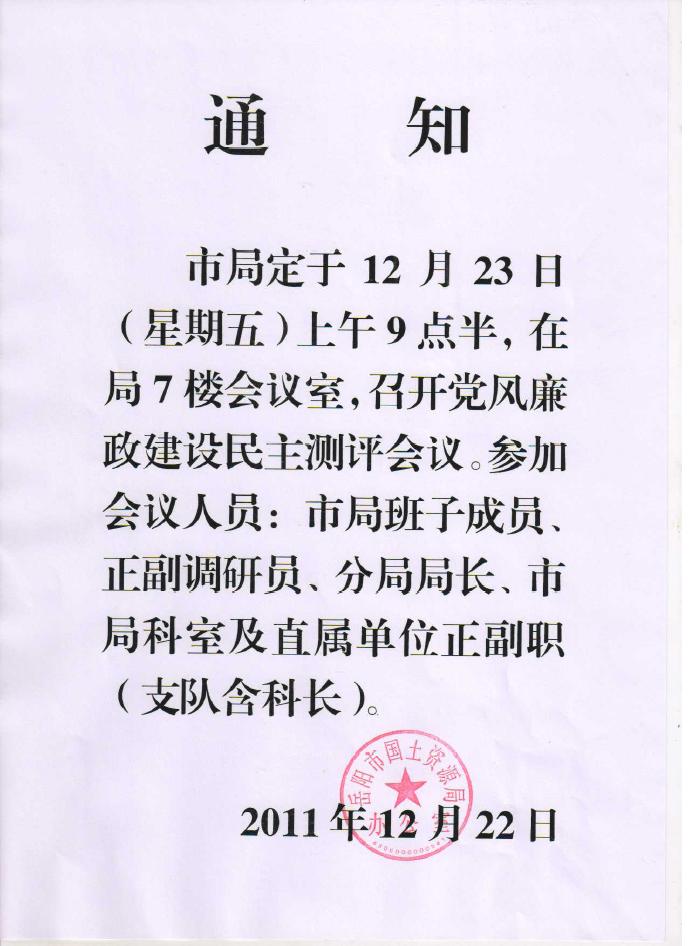 通 知
市局定于 12 月 23 日
（星期五）上午 9 点半，在
局 7 楼会议室，召开党风廉
政建设民主测评会议。参加
会议人员：市局班子成员、
正副调研员、分局局长、市
局科室及直属单位正副职
（支队含科长）。
岳阳市国土资源局
办公室
2011 年 12 月 22 日